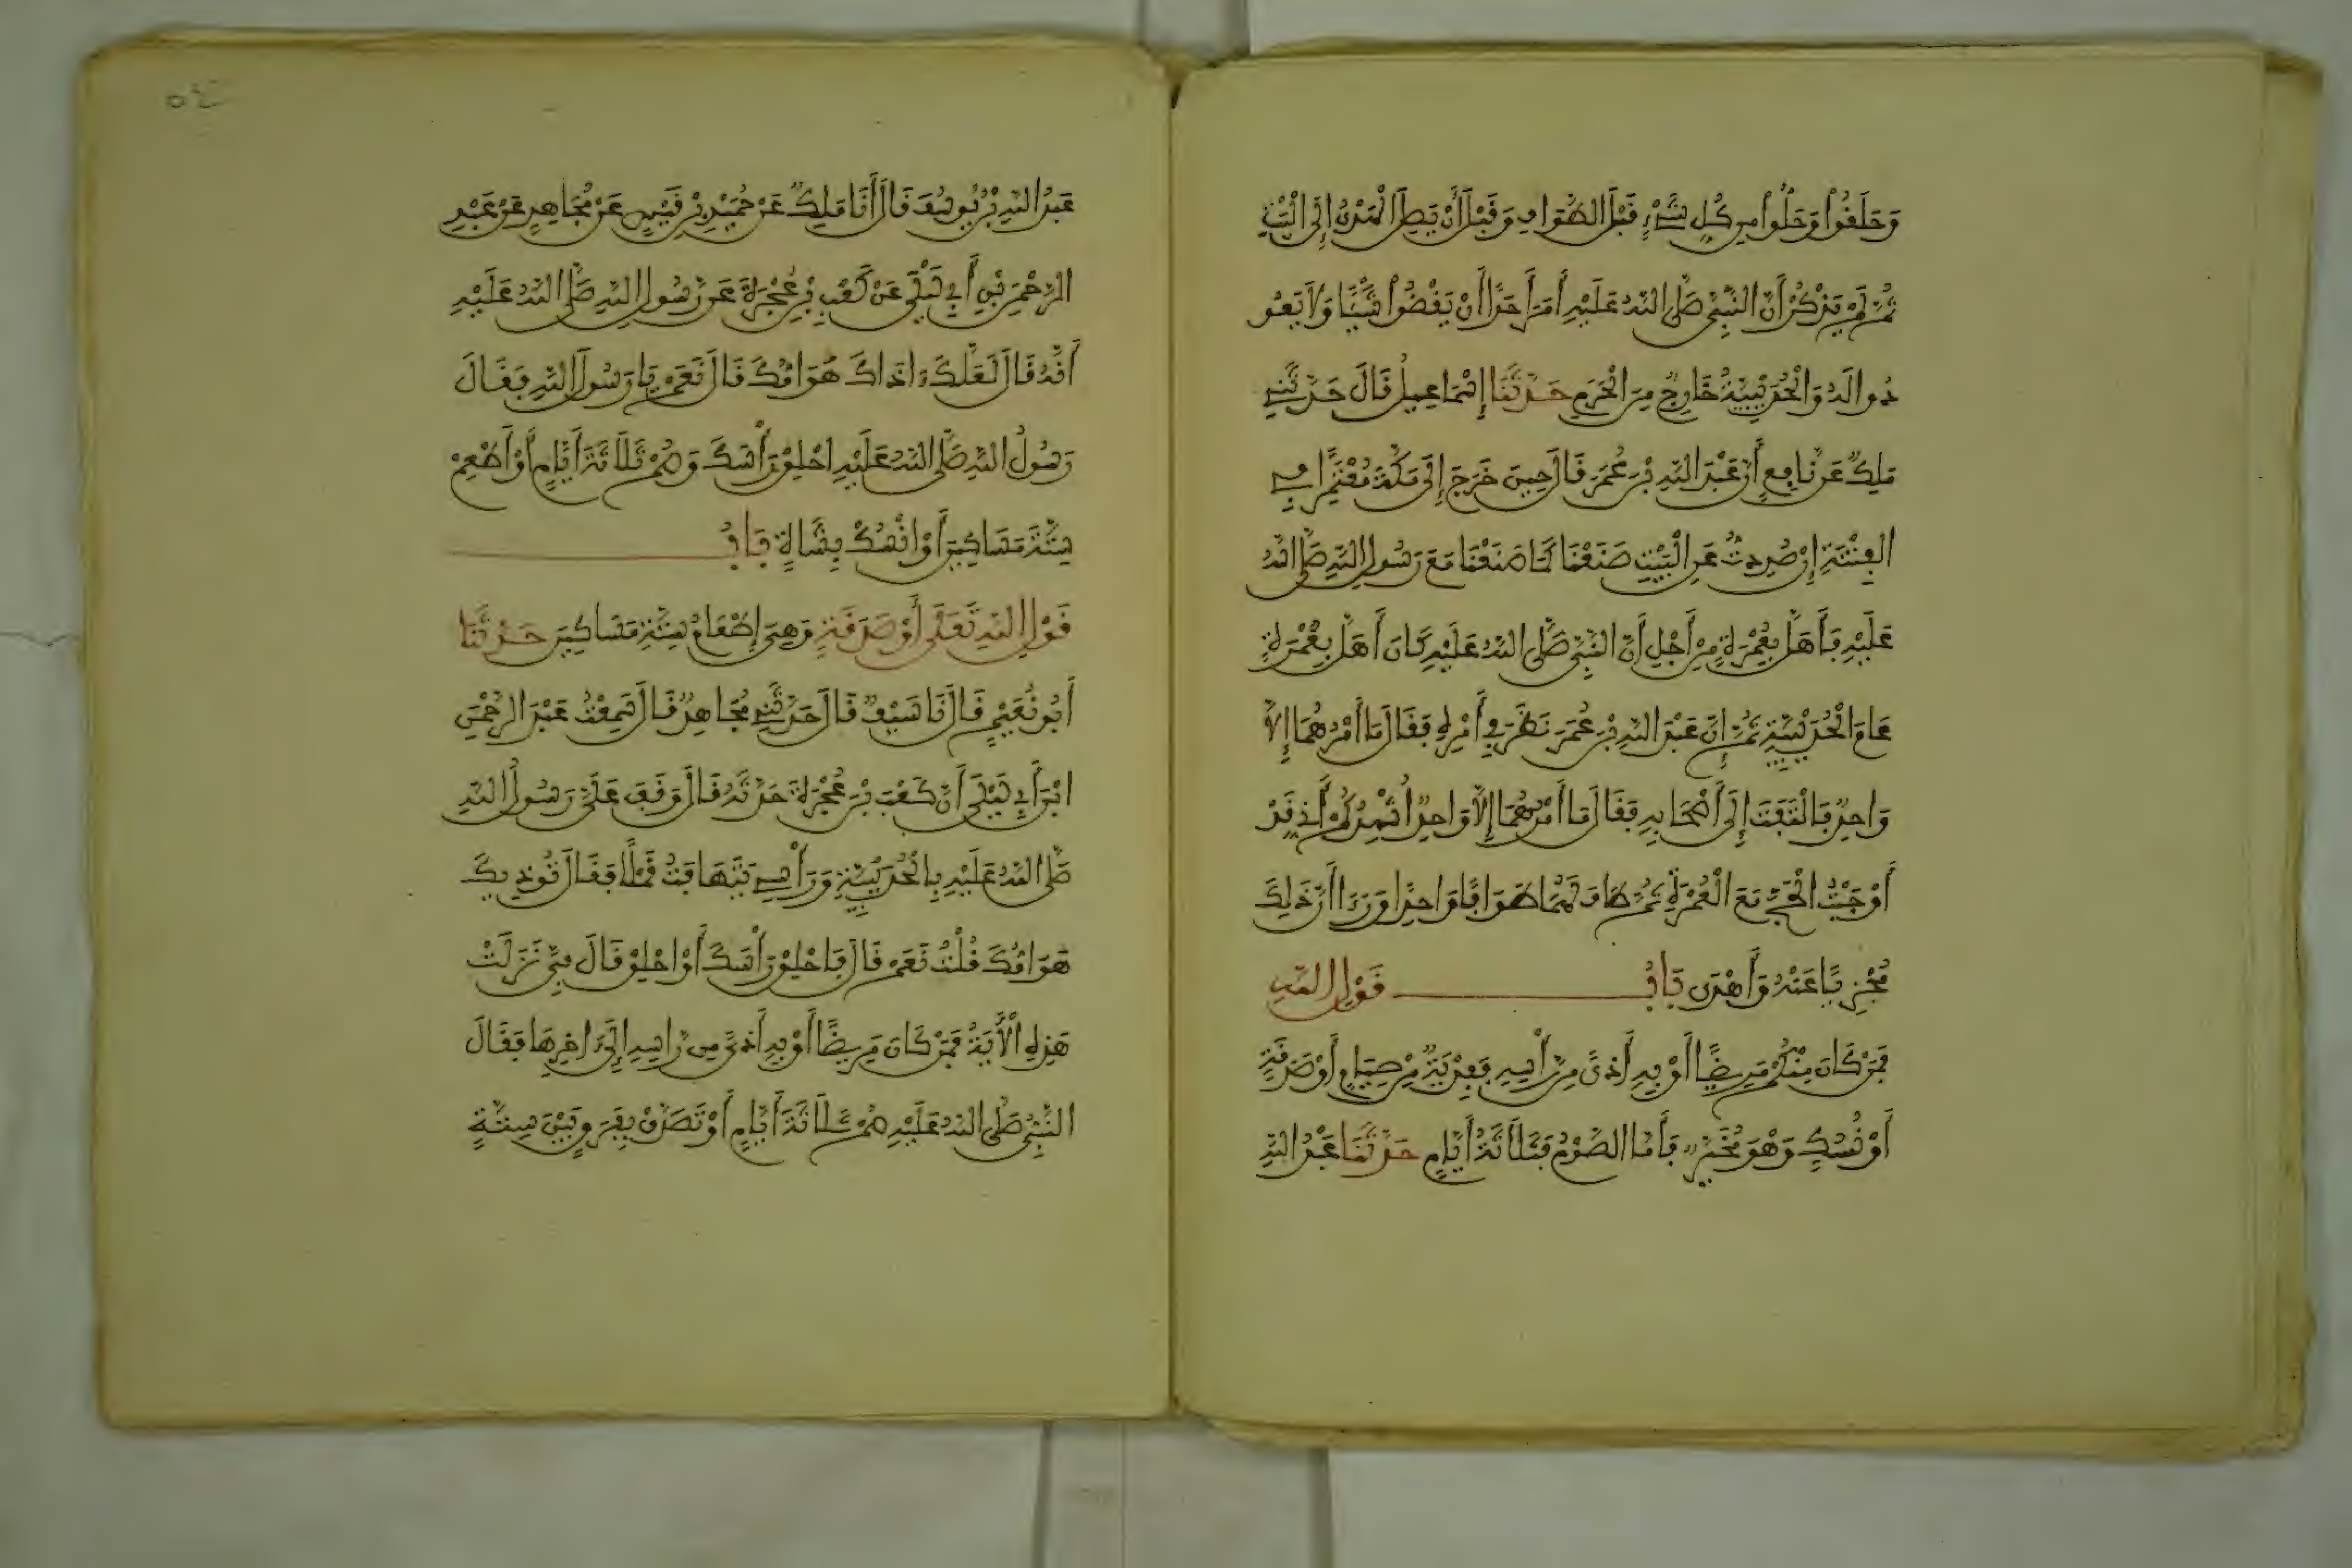 وَحَلَفُوا وَحَلُّوا مِن كُلِّ شَيْءٍ قَبْلَ الطَّوَافِ وَقَبْلَ أَنْ يَصِلَ الْهَدْيُ إِلَى الْبَيْتِ
ثُمَّ لَمْ يَذْكُرْ أَنَّ النَّبِيَّ صَلَّى اللهُ عَلَيْهِ أَمَرَ أَحَدًا أَنْ يَقْضُوا شَيْئًا وَلَا يَعُو
دُوا لَهُ وَالْحُدَيْبِيَةُ خَارِجٌ مِنَ الْحَرَمِ حَدَّثَنَا إِسْمَاعِيلُ قَالَ حَدَّثَنِي
مَلِكٌ عَن نَّافِعٍ أَنَّ عَبْدَ اللهِ بْنَ عُمَرَ قَالَ حِينَ خَرَجَ إِلَى مَكَّةَ مُعْتَمِرًا فِي
الْفِتْنَةِ إِن صُدِدتُّ عَنِ الْبَيْتِ صَنَعْنَا كَمَا صَنَعْنَا مَعَ رَسُولِ اللهِ صَلَّى اللهُ
عَلَيْهِ فَأَهَلَّ بِعُمْرَةٍ مِنْ أَجْلِ أَنَّ النَّبِيَّ صَلَّى اللهُ عَلَيْهِ كَانَ أَهَلَّ بِعُمْرَةٍ
عَامَ الْحُدَيْبِيَةِ ثُمَّ إِنَّ عَبْدَ اللهِ بْنَ عُمَرَ نَظَرَ فِي أَمْرِهِ فَقَالَ مَا أَمْرُهُمَا إِلَّا
وَاحِدٌ فَالْتَفَتَ إِلَى أَصْحَابِهِ فَقَالَ مَا أَمْرُهُمَا إِلَّا وَاحِدٌ أُشْهِدُكُمْ أَنِّي قَدْ
أَوْجَبْتُ الْحَجَّ مَعَ الْعُمْرَةِ ثُمَّ طَافَ لَهُمَا طَوَافًا وَاحِدًا وَرَءَا أَنَّ ذَلِكَ
مُجْزِيًا عَنْهُ وَأَهْدَى بَابُ قَوْلِ اللهِ
فَمَن كَانَ مِنْكُمْ مَرِيضًا أَوْ بِهِ أَذًى مِّن رَّأْسِهِ فَفِدْيَةٌ مِنْ صِيَامٍ أَوْ صَدَقَةٍ
أَوْ نُسُكٍ وَهْوَ مُخَيَّرٌ فَأَمَّا الصَّوْمُ فَثَلَاثَةُ أَيَّامٍ حَدَّثَنَا عَبْدُ اللهِ
عَبْدُ اللهِ بْنُ يُوسُفَ قَالَ أَنَا مَلِكٌ عَنْ حُمَيْدِ بْنِ قَيْسٍ عَنْ مُجَاهِدٍ عَنْ عَبْدِ
الرَّحْمَنِ بْنِ أَبِي لَيْلَى عَنْ كَعْبِ بْنِ عُجْرَةَ عَن رَّسُولِ اللهِ صَلَّى اللهُ عَلَيْهِ
أَنَّهُ قَالَ لَعَلَّكَ ءَاذَاكَ هَوَامُّكَ قَالَ نَعَمْ يَا رَسُولَ اللهِ فَقَالَ
رَسُولُ اللهِ صَلَّى اللهُ عَلَيْهِ احْلِقْ رَأْسَكَ وَصُمْ ثَلَاثَةَ أَيَّامٍ أَوْ أَطْعِمْ
سِتَّةَ مَسَاكِينَ أَوْ انْسُكْ بِشَاةٍ بَابُ
قَوْلِ اللهِ تَعَلَى أَوْ صَدَقَةٍ وَهِيَ إِطْعَامُ سِتَّةِ مَسَاكِينَ حَدَّثَنَا
أَبُو نُعَيْمٍ قَالَ نَا سَيْفٌ قَالَ حَدَّثَنِي مُجَاهِدٌ قَالَ سَمِعْتُ عَبْدَ الرَّحْمَنِ
ابْنَ أَبِي لَيْلَى أَنَّ كَعْبَ بْنَ عُجْرَةَ حَدَّثَهُ قَالَ وَقَفَ عَلَيَّ رَسُولُ اللهِ
صَلَّى اللهُ عَلَيْهِ بِالْحُدَيْبِيَةِ وَرَأْسِي يَتَهَافَتُ قَمْلًا فَقَالَ تُوذِيكَ
هَوَامُّكَ قُلْتُ نَعَمْ قَالَ فَاحْلِقْ رَأْسَكَ أَوْ احْلِقْ قَالَ فِيَّ نَزَلَتْ
هَذِهِ الْأَيَةُ فَمَنْ كَانَ مَرِيضًا أَوْ بِهِ أَذًى مِّن رَّاسِهِ إِلَى ءَاخِرِهَا فَقَالَ
النَّبِيُّ صَلَّى اللهُ عَلَيْهِ صُمْ ثَلَاثَةَ أَيَّامٍ أَوْ تَصَدَّقْ بِفَرَقٍ بَيْنَ سِتَّةٍ